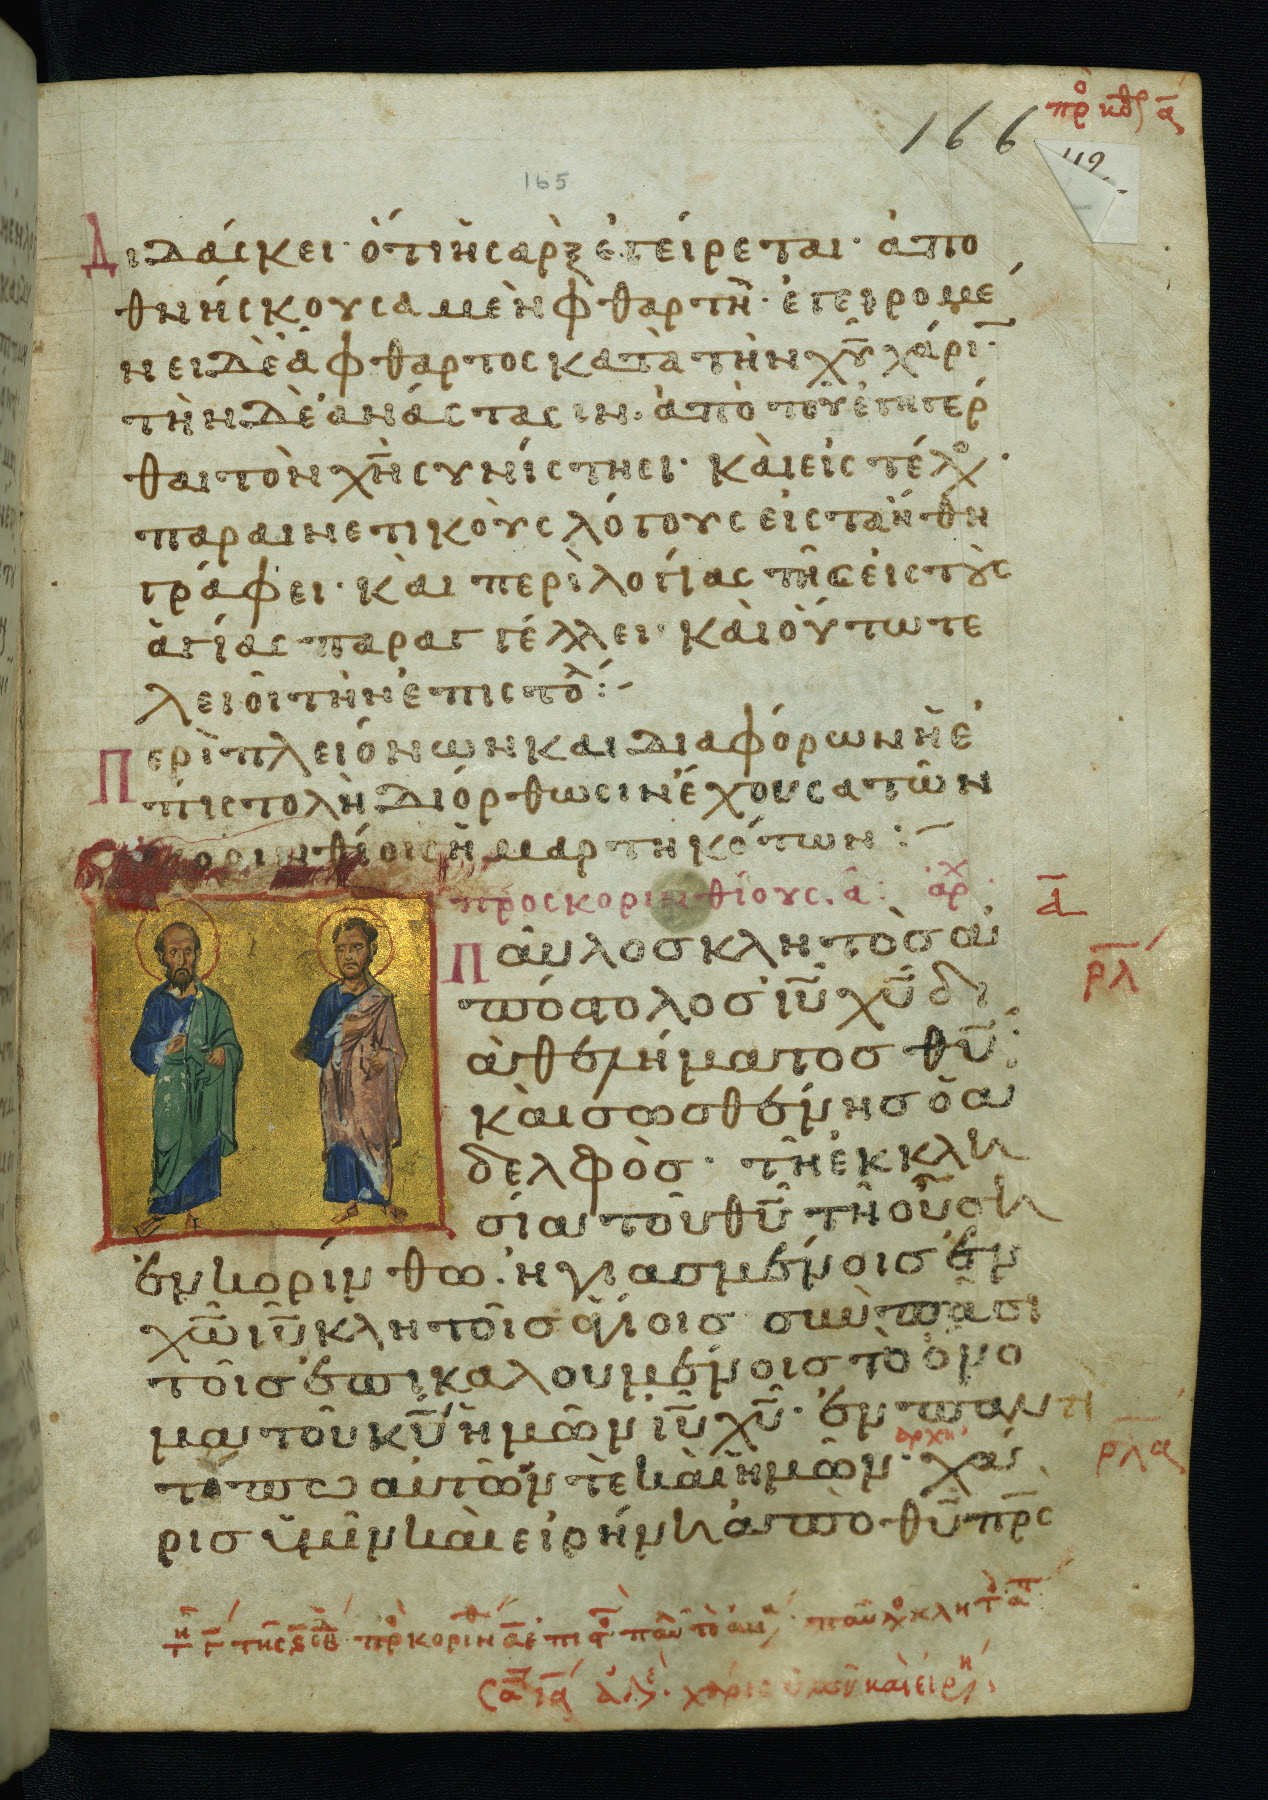 166
165
Διδάσκει· ὅτι ἡ σὰρξ ἐγείρεται· ἀπο
θνήσκουσα μὲν φθαρτὴ· ἐγειρομέ
νει δὲ ἄφθαρτος κατὰ τὴν χ̅υ̅ χάρι·
τὴν δὲ ἀνάστασιν· ἀπὸ τοῦ ἐγηγέρ
θαι τὸν χ̅ν̅ συνίστησι· καὶ εἰς τέλος·
παραινετικοὺς λόγους εἰς τὰ ἤθη
γράφει· καὶ περὶ λογίας τῆς εἰς τοὺς
ἁγίας παραγγέλλει· καὶ οὕτω τε
λειοῖ τὴν ἐπιστολ:
Περὶ πλειόνων και διαφόρων ἡ ἐ
πιστολὴ διόρθωσιν ἔχουσα τῶν
κορινθίοις ἡμαρτηκότων:
πρὸς κορινθίους. α̅: ἀρχ
Παῦλος κλητὸς ἀ
πόστολος ι̅υ̅ χ̅υ̅ δι
ὰ θελήματος θ̅υ̅
καὶ σωσθένης ὁ ἀ
δελφὸς· τῆ ἐκκλη
σία τοῦ θ̅υ̅ τῆ οὔση
ἐν κορίνθω. ἡγιασμένοις ἐν
χ̅ω̅ ι̅υ̅ κλητοῖς ἁγίοις σὺν πᾶσι
τοῖς ἐπικαλουμένοις τὸ ὄνο
μα τοῦ κ̅υ̅ ἡμῶν ι̅υ̅ χ̅υ̅· ἐν παντὶ
τόπω αυτῶν τὲ καὶ ἡμῶν· χά
αρχη
ρις ὑμῖν καὶ εἰρήνη ἀπὸ θ̅υ̅ π̅ρ̅ς
α̅
ρ̅λ̅
ρ̅λ̅α̅